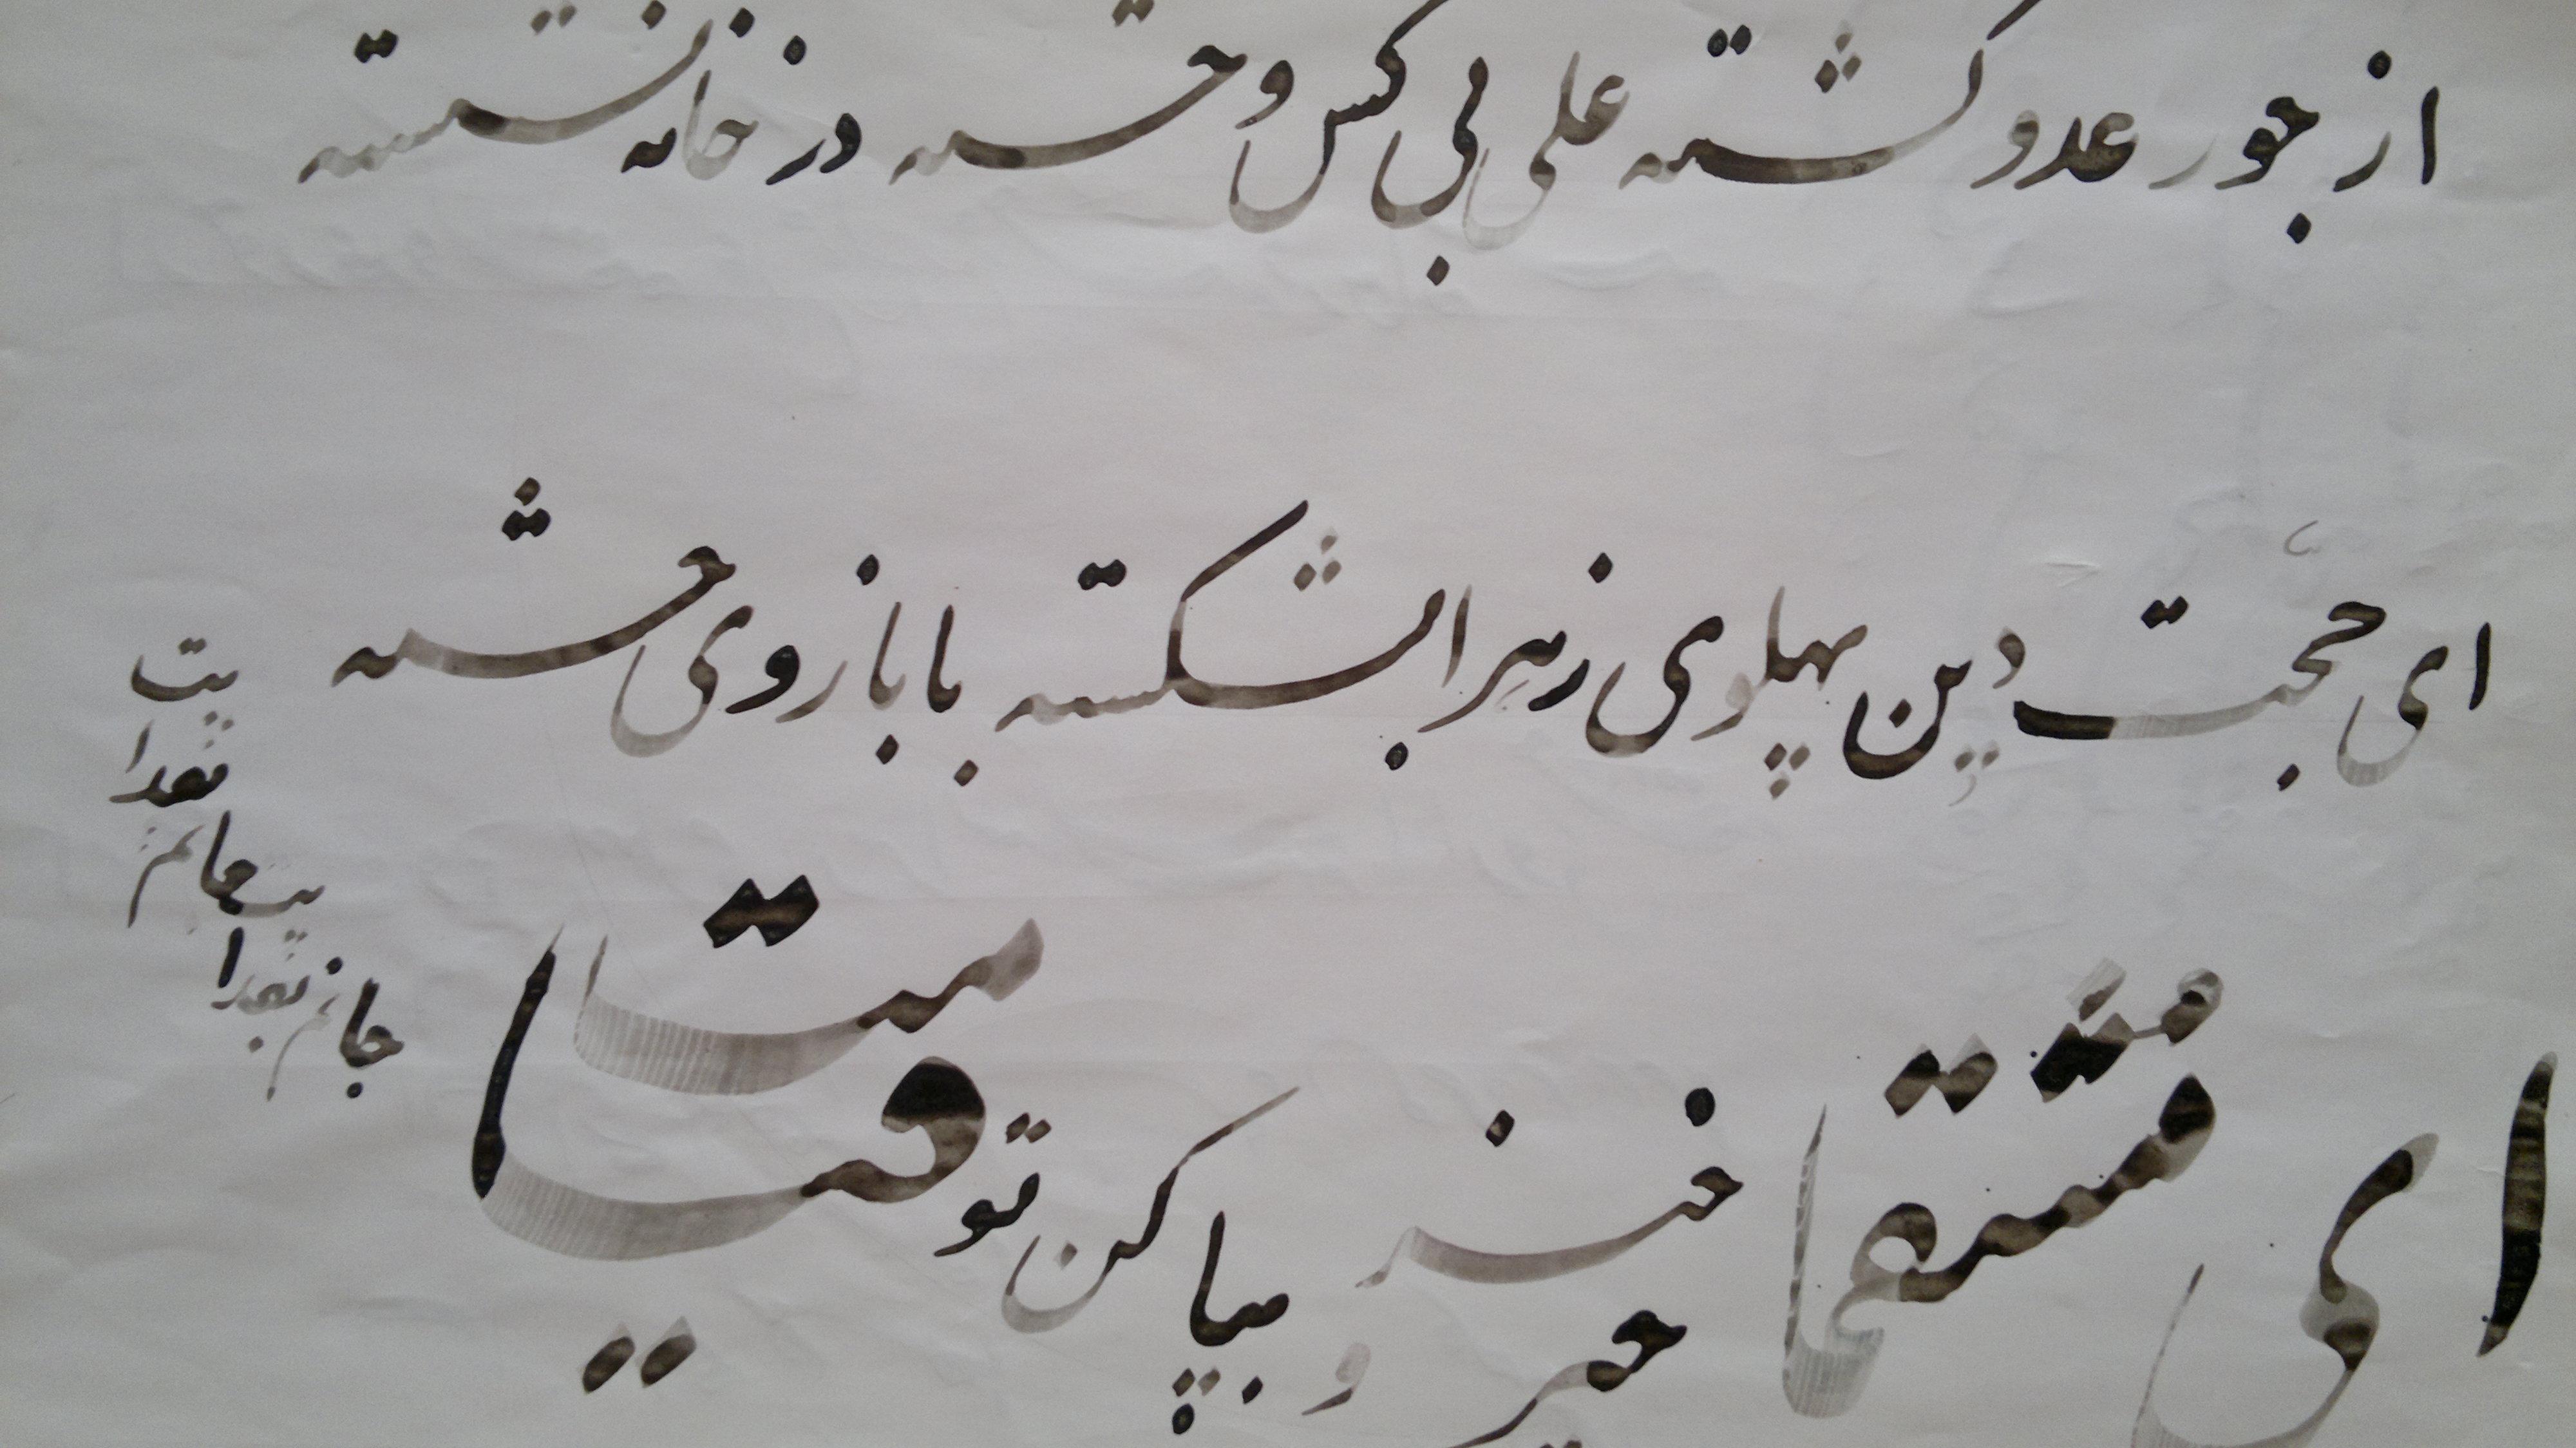 از جور عدو گشته علی بی کس و خسته در خانه نشسته
ای حجّت دین پهلوی زهرا بشکسته با بازوی خسته
ای منتقما خیز و بپا کن تو قیامت
جانم بفدایت جانم بفدایت